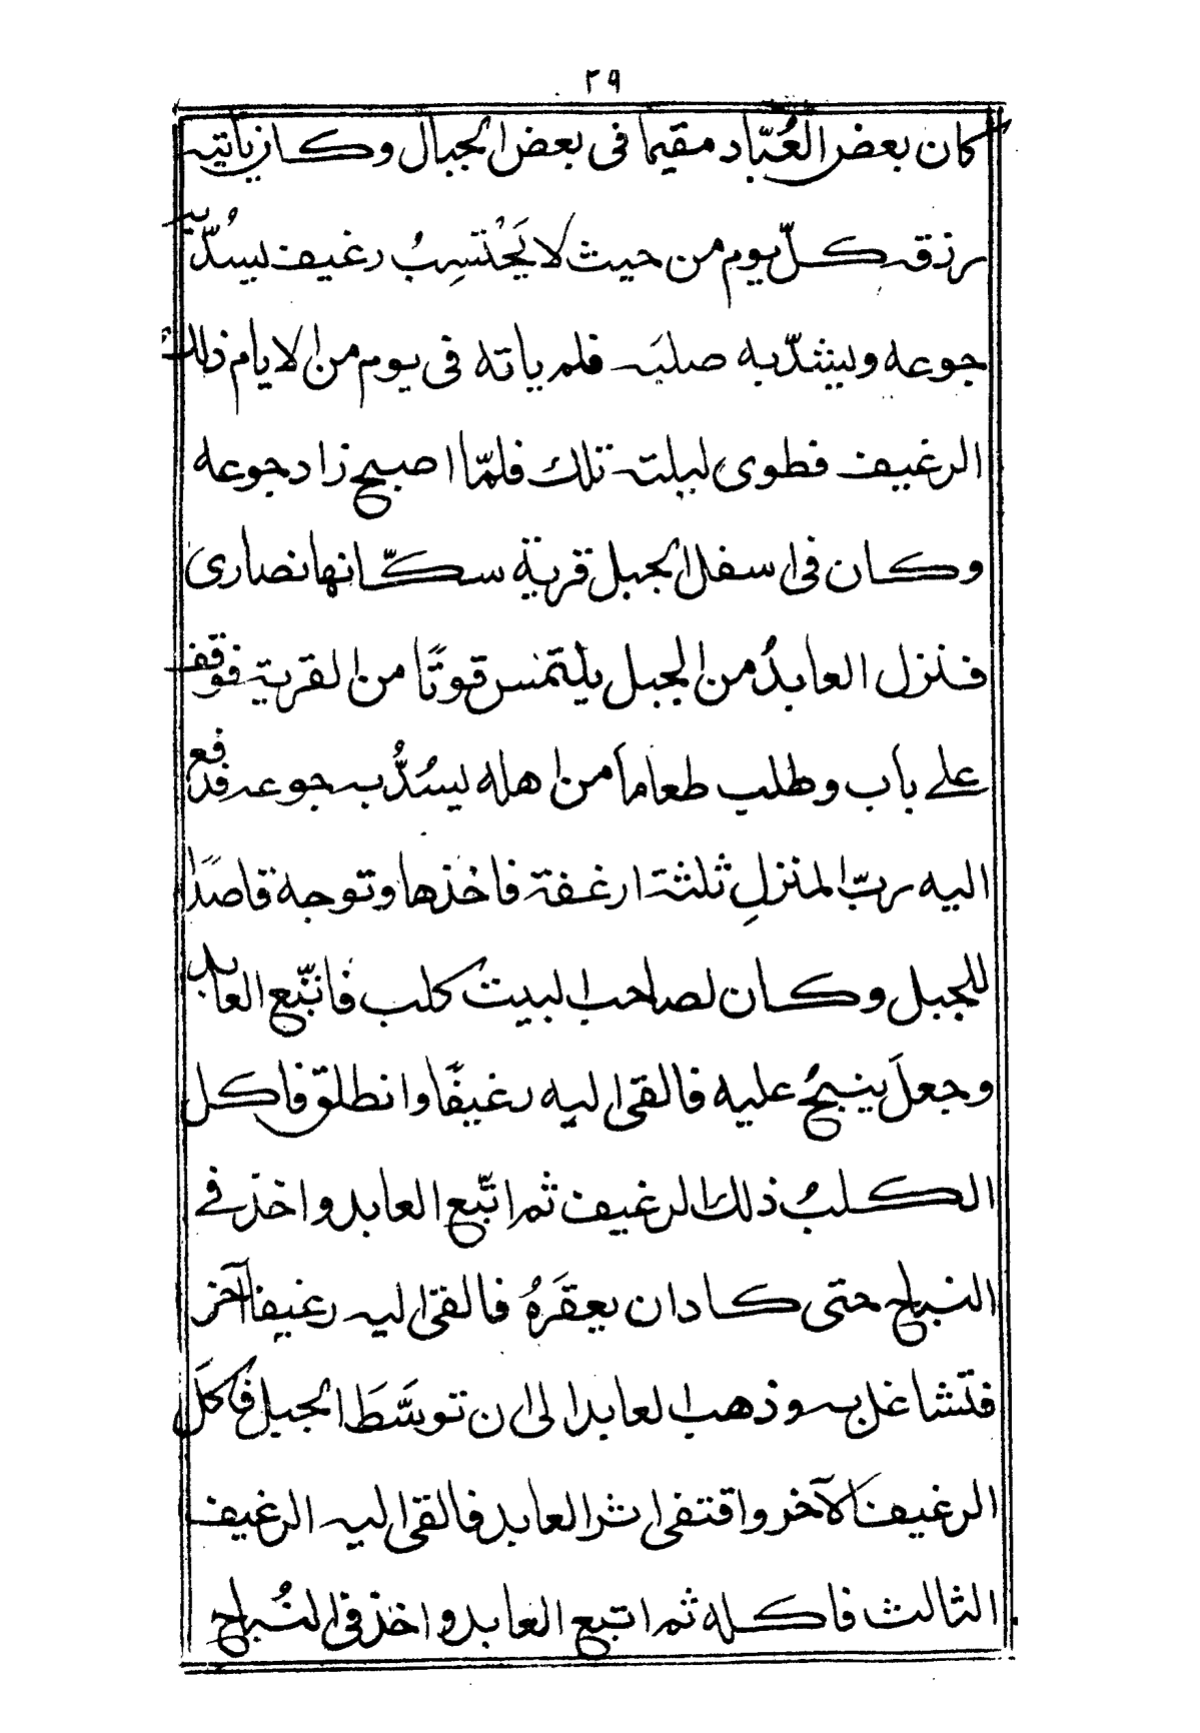 ٢٩
كان بعض العُبّاد مقيما فى بعض الجبال وكان ياتيه
رزقه كلّ يوم من حيث لا يَحْتَسِبُ رغيف يسُدُّ به
جوعه ويشدّ به صلبَه فلم ياته فى يوم من الايام ذلك
الرغيف فطوى ليلته تلك فلمّا اصبح زاد جوعه
وكان فى اسفل الجبل قرية سكّانها نصارى
فنزل العابدُ من الجبل يلتمس قوتًا من القرية فوقف
على باب وطلب طعاما من اهله يسُدُّ به جوعه فدفع
اليه ربّ المنزلِ ثلثة ارغفة فاخذها وتوجه قاصدًا
للجبل وكان لصاحب البيت كلب فاتّبع العابد
وجعلَ ينبحُ عليه فالقى اليه رغيفًا وانطلق فاكل
الكلبُ ذلك الرغيف ثم اتّبع العابد واخذ فے
النباح حتى كاد ان يعقَرهُ فالقى اليه رغيفا آخر
فتشاغل به وذهب العابد الى ان توسَّطَ الجبل فاكلَ
الرغيف الآخر واقتفى اثر العابد فالقى اليه الرغيف
الثالث فاكله ثم اتبع العابد واخذ فى النُباح